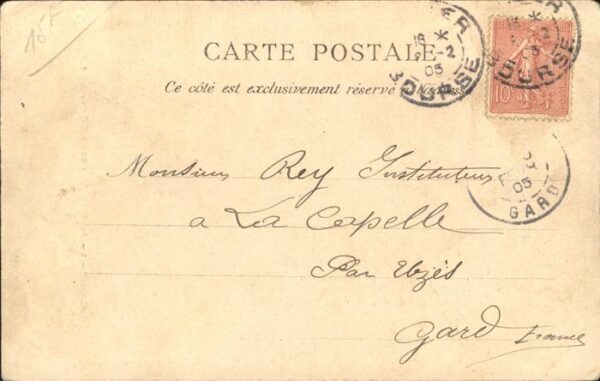 15F
CARTE POSTALE
Ce côté est exclusivement réservé à l'adresse
16 *
9-2
05
BOURSE
10
BOURSE
05
GARD
Monsieur Rey Instituteur
a La Capelle
Par Uzès
Gard France